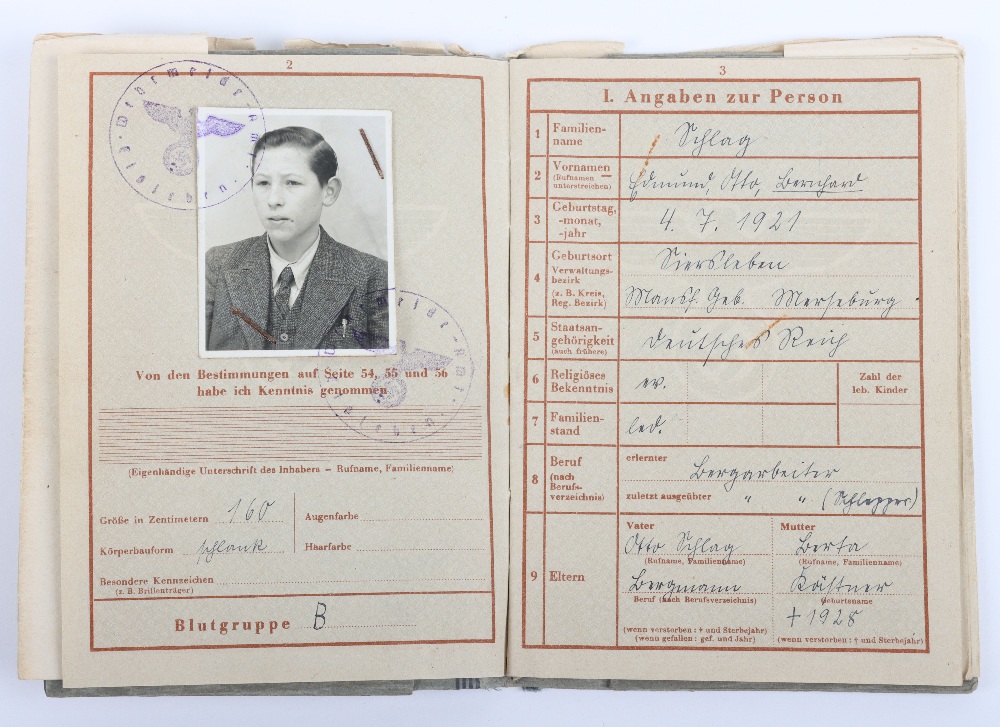 2
Wehrmeldeamt
Von den Bestimmungen auf Seite 54, 55 und 56
habe ich Kenntnis genommen
Wehrmeldeamt
(Eigenhändige Unterschrift des Inhabers – Rufname, Familienname)
Größe in Zentimetern 160
Augenfarbe
Körperbauform schlank
Haarfarbe
Besondere Kennzeichen
(z. B. Brillenträger)
Blutgruppe B
3
I. Angaben zur Person
1 Familien-
name
Schlag
2 Vornamen
(Rufnamen
unterstreichen)
Edmund, Otto, Bernhard
3 Geburtstag,
-monat,
-jahr
4. 7. 1921
4 Geburtsort
Verwaltungs-
bezirk
(z. B. Kreis,
Reg. Bezirk)
Siersleben
Mansf. Geb. Merseburg
5 Staatsan-
gehörigkeit
(auch frühere)
Deutsches Reich
6 Religiöses
Bekenntnis
ev.
Zahl der
leb. Kinder
7 Familien-
stand
led.
8 Beruf
(nach
Berufs-
verzeichnis)
erlernter
Bergarbeiter
zuletzt ausgeübter " " (Schlepper)
9 Eltern
Vater
Otto Schlag
(Rufname, Familienname)
Bergmann
Beruf (nach Berufsverzeichnis)
(wenn verstorben: † und Sterbejahr)
(wenn gefallen: gef. und Jahr)
Mutter
Berta
(Rufname, Familienname)
Köstner
Geburtsname
† 1928
(wenn verstorben: † und Sterbejahr)